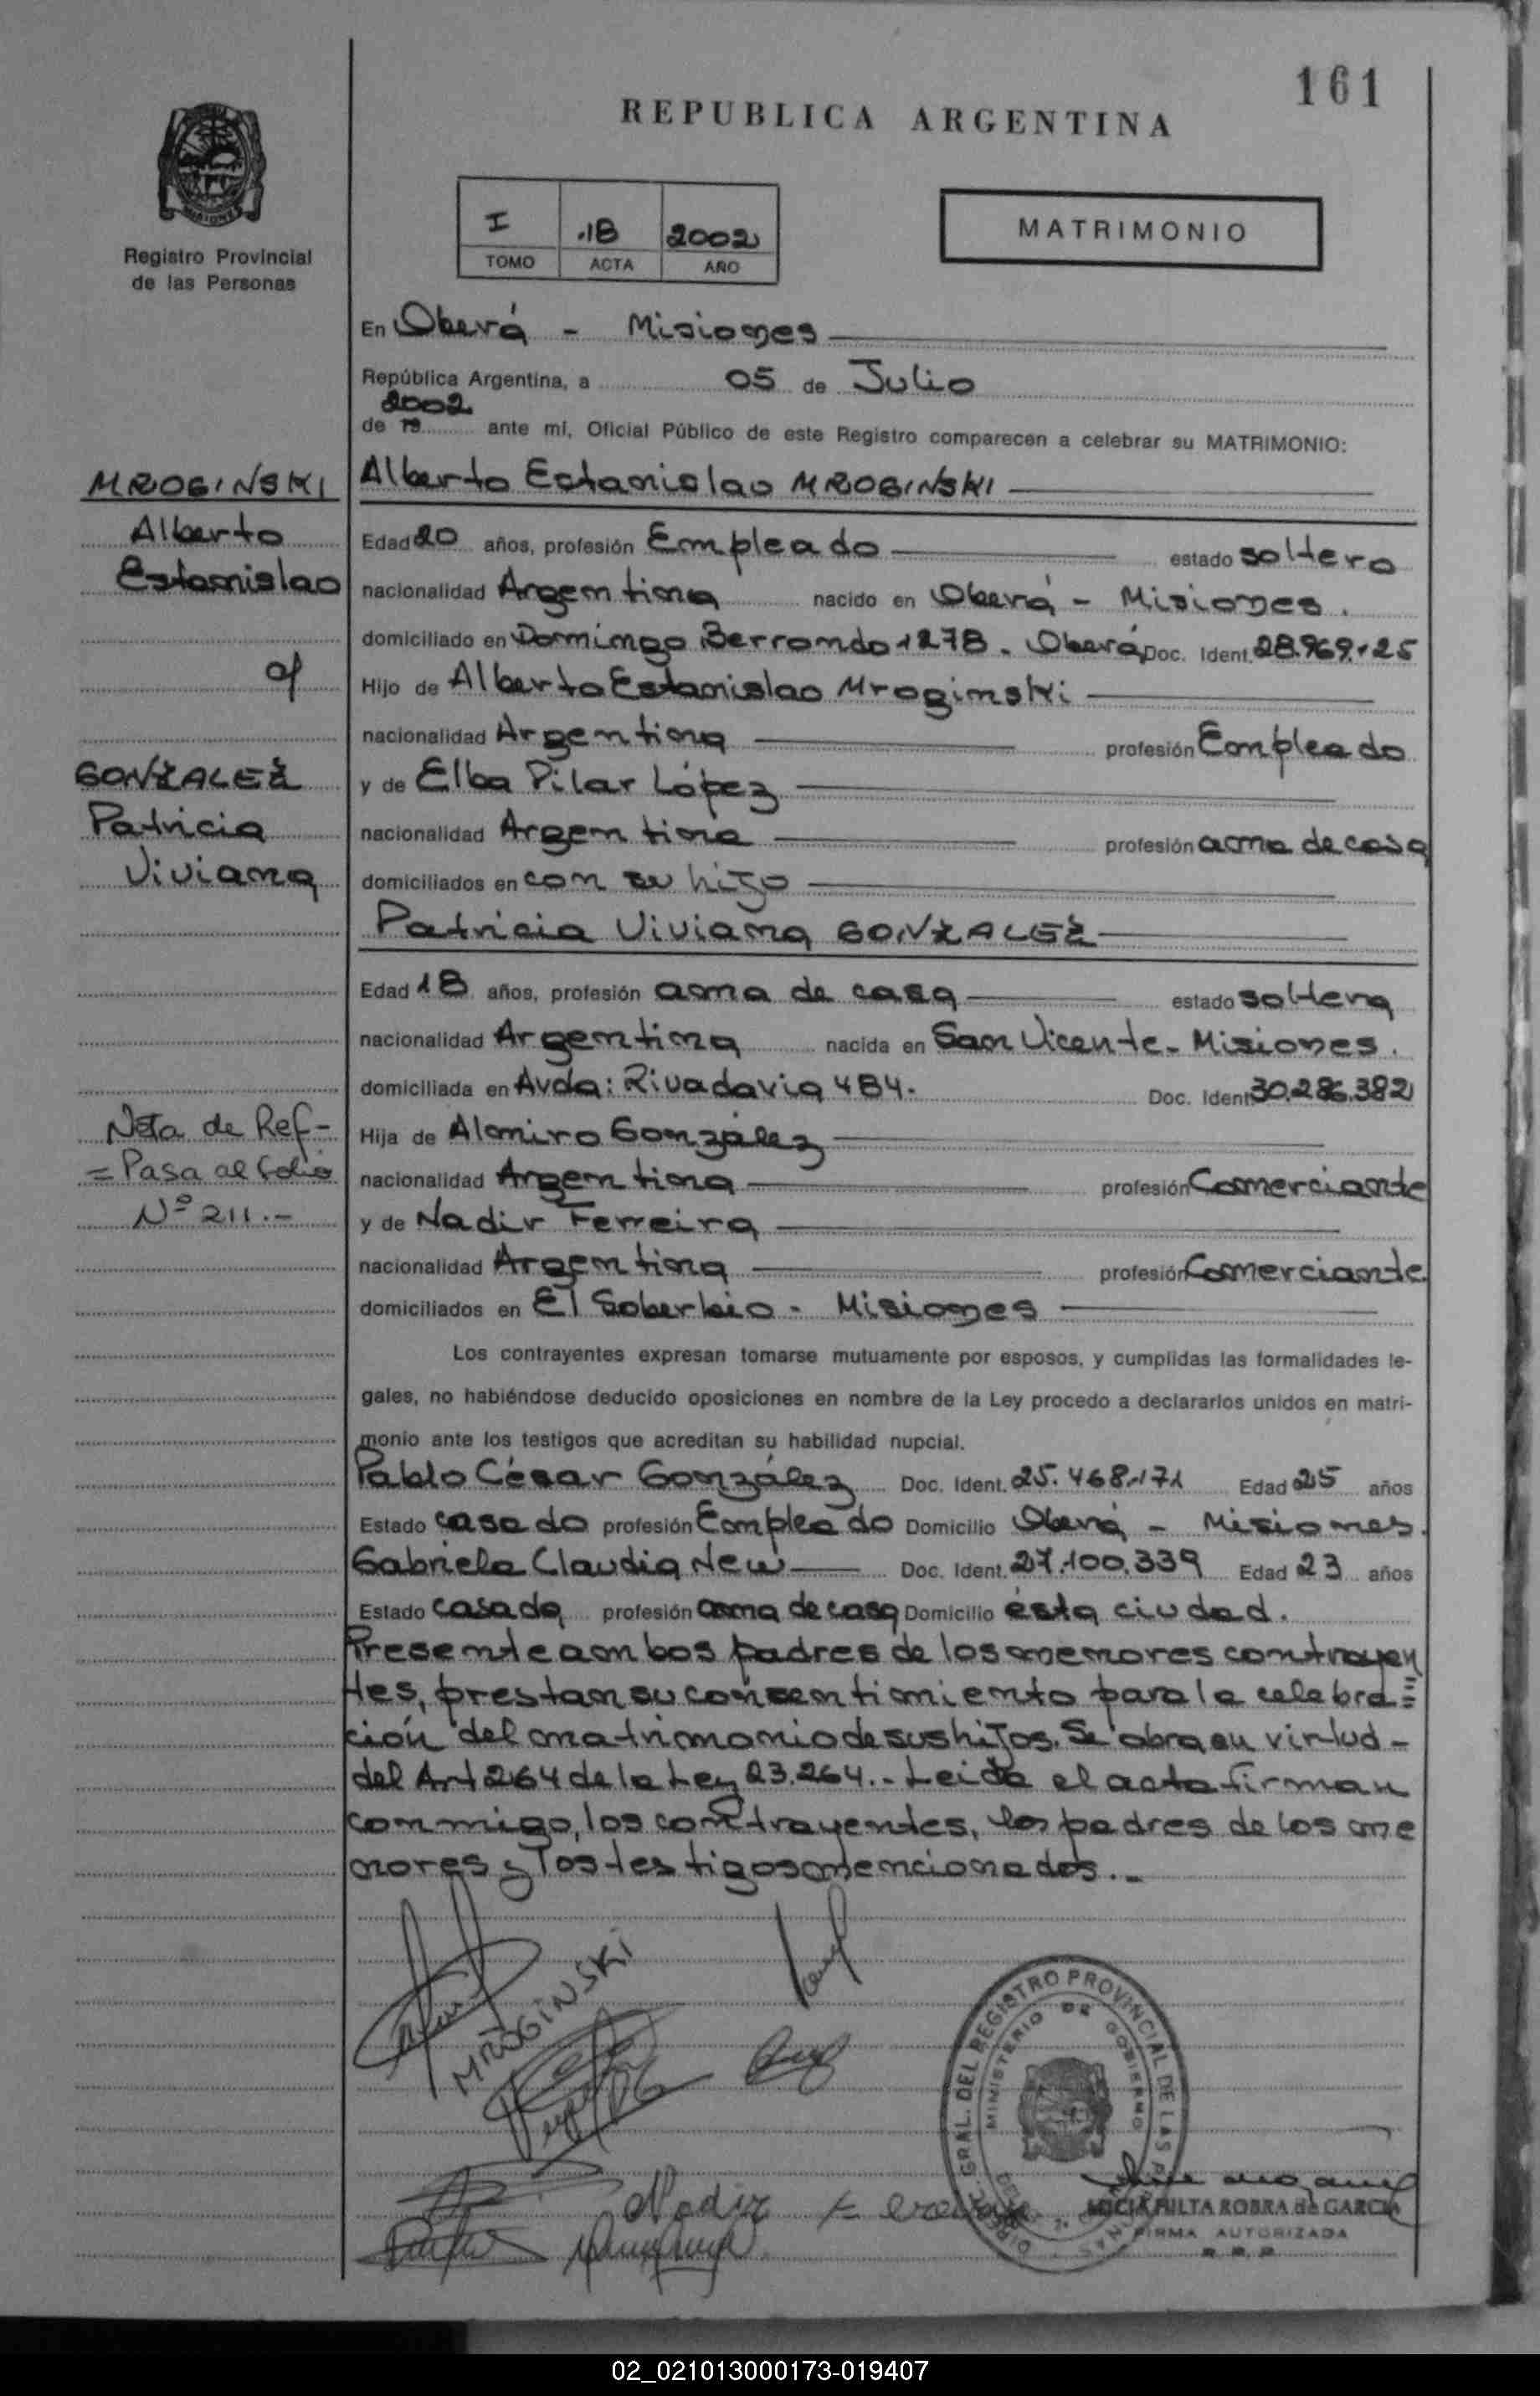 161
REPUBLICA ARGENTINA
Registro Provincial
de las Personas
I 18 2002
TOMO ACTA AÑO
MATRIMONIO
En Oberá - Misiones
República Argentina, a 05 de Julio
2002
de 19 ante mí, Oficial Público de este Registro comparecen a celebrar su MATRIMONIO:
MROGINSKI
Alberto
Estanislao
c/
GONZALEZ
Patricia
Viviana
Nota de Ref-
= Pasa al folio
Nº 211.-
Alberto Estanislao MROGINSKI
Edad 20 años, profesión Empleado estado soltero
nacionalidad Argentina nacido en Oberá - Misiones.
domiciliado en Domingo Berrondo 1278. Oberá Doc. Ident. 28.969.125
Hijo de Alberto Estanislao Mroginski
nacionalidad Argentina profesión Empleado
y de Elba Pilar López
nacionalidad Argentina profesión ama de casa
domiciliados en con su hijo
Patricia Viviana GONZALEZ
Edad 18 años, profesión ama de casa estado soltera
nacionalidad Argentina nacida en San Vicente - Misiones.
domiciliada en Avda: Rivadavia 484. Doc. Ident 30.286.382
Hija de Almiro González
nacionalidad Argentina profesión Comerciante
y de Nadir Ferreira
nacionalidad Argentina profesión Comerciante
domiciliados en El Soberbio - Misiones
Los contrayentes expresan tomarse mutuamente por esposos, y cumplidas las formalidades le-
gales, no habiéndose deducido oposiciones en nombre de la Ley procedo a declararlos unidos en matri-
monio ante los testigos que acreditan su habilidad nupcial.
Pablo César González Doc. Ident. 25.468.171 Edad 25 años
Estado casado profesión Empleado Domicilio Oberá - Misiones.
Gabriela Claudia New Doc. Ident. 27.100.339 Edad 23 años
Estado casada profesión ama de casa Domicilio ésta ciudad.
Presente ambos padres de los menores contrayen
tes, prestan su consentimiento para la celebra=
ción del matrimonio de sus hijos. Se obra en virtud -
del Art 264 de la Ley 23.264.- Leída el acta firman
conmigo, los contrayentes, los padres de los me
nores y los testigos mencionados.-
MROGINSKI
Nadir
DIREC. GRAL. DEL REGISTRO PROVINCIAL DE LAS PERSONAS
MINISTERIO DE GOBIERNO
LUCIA HILTA ROBRA de GARCIA
FIRMA AUTORIZADA
R. R. P.
02_021013000173-019407